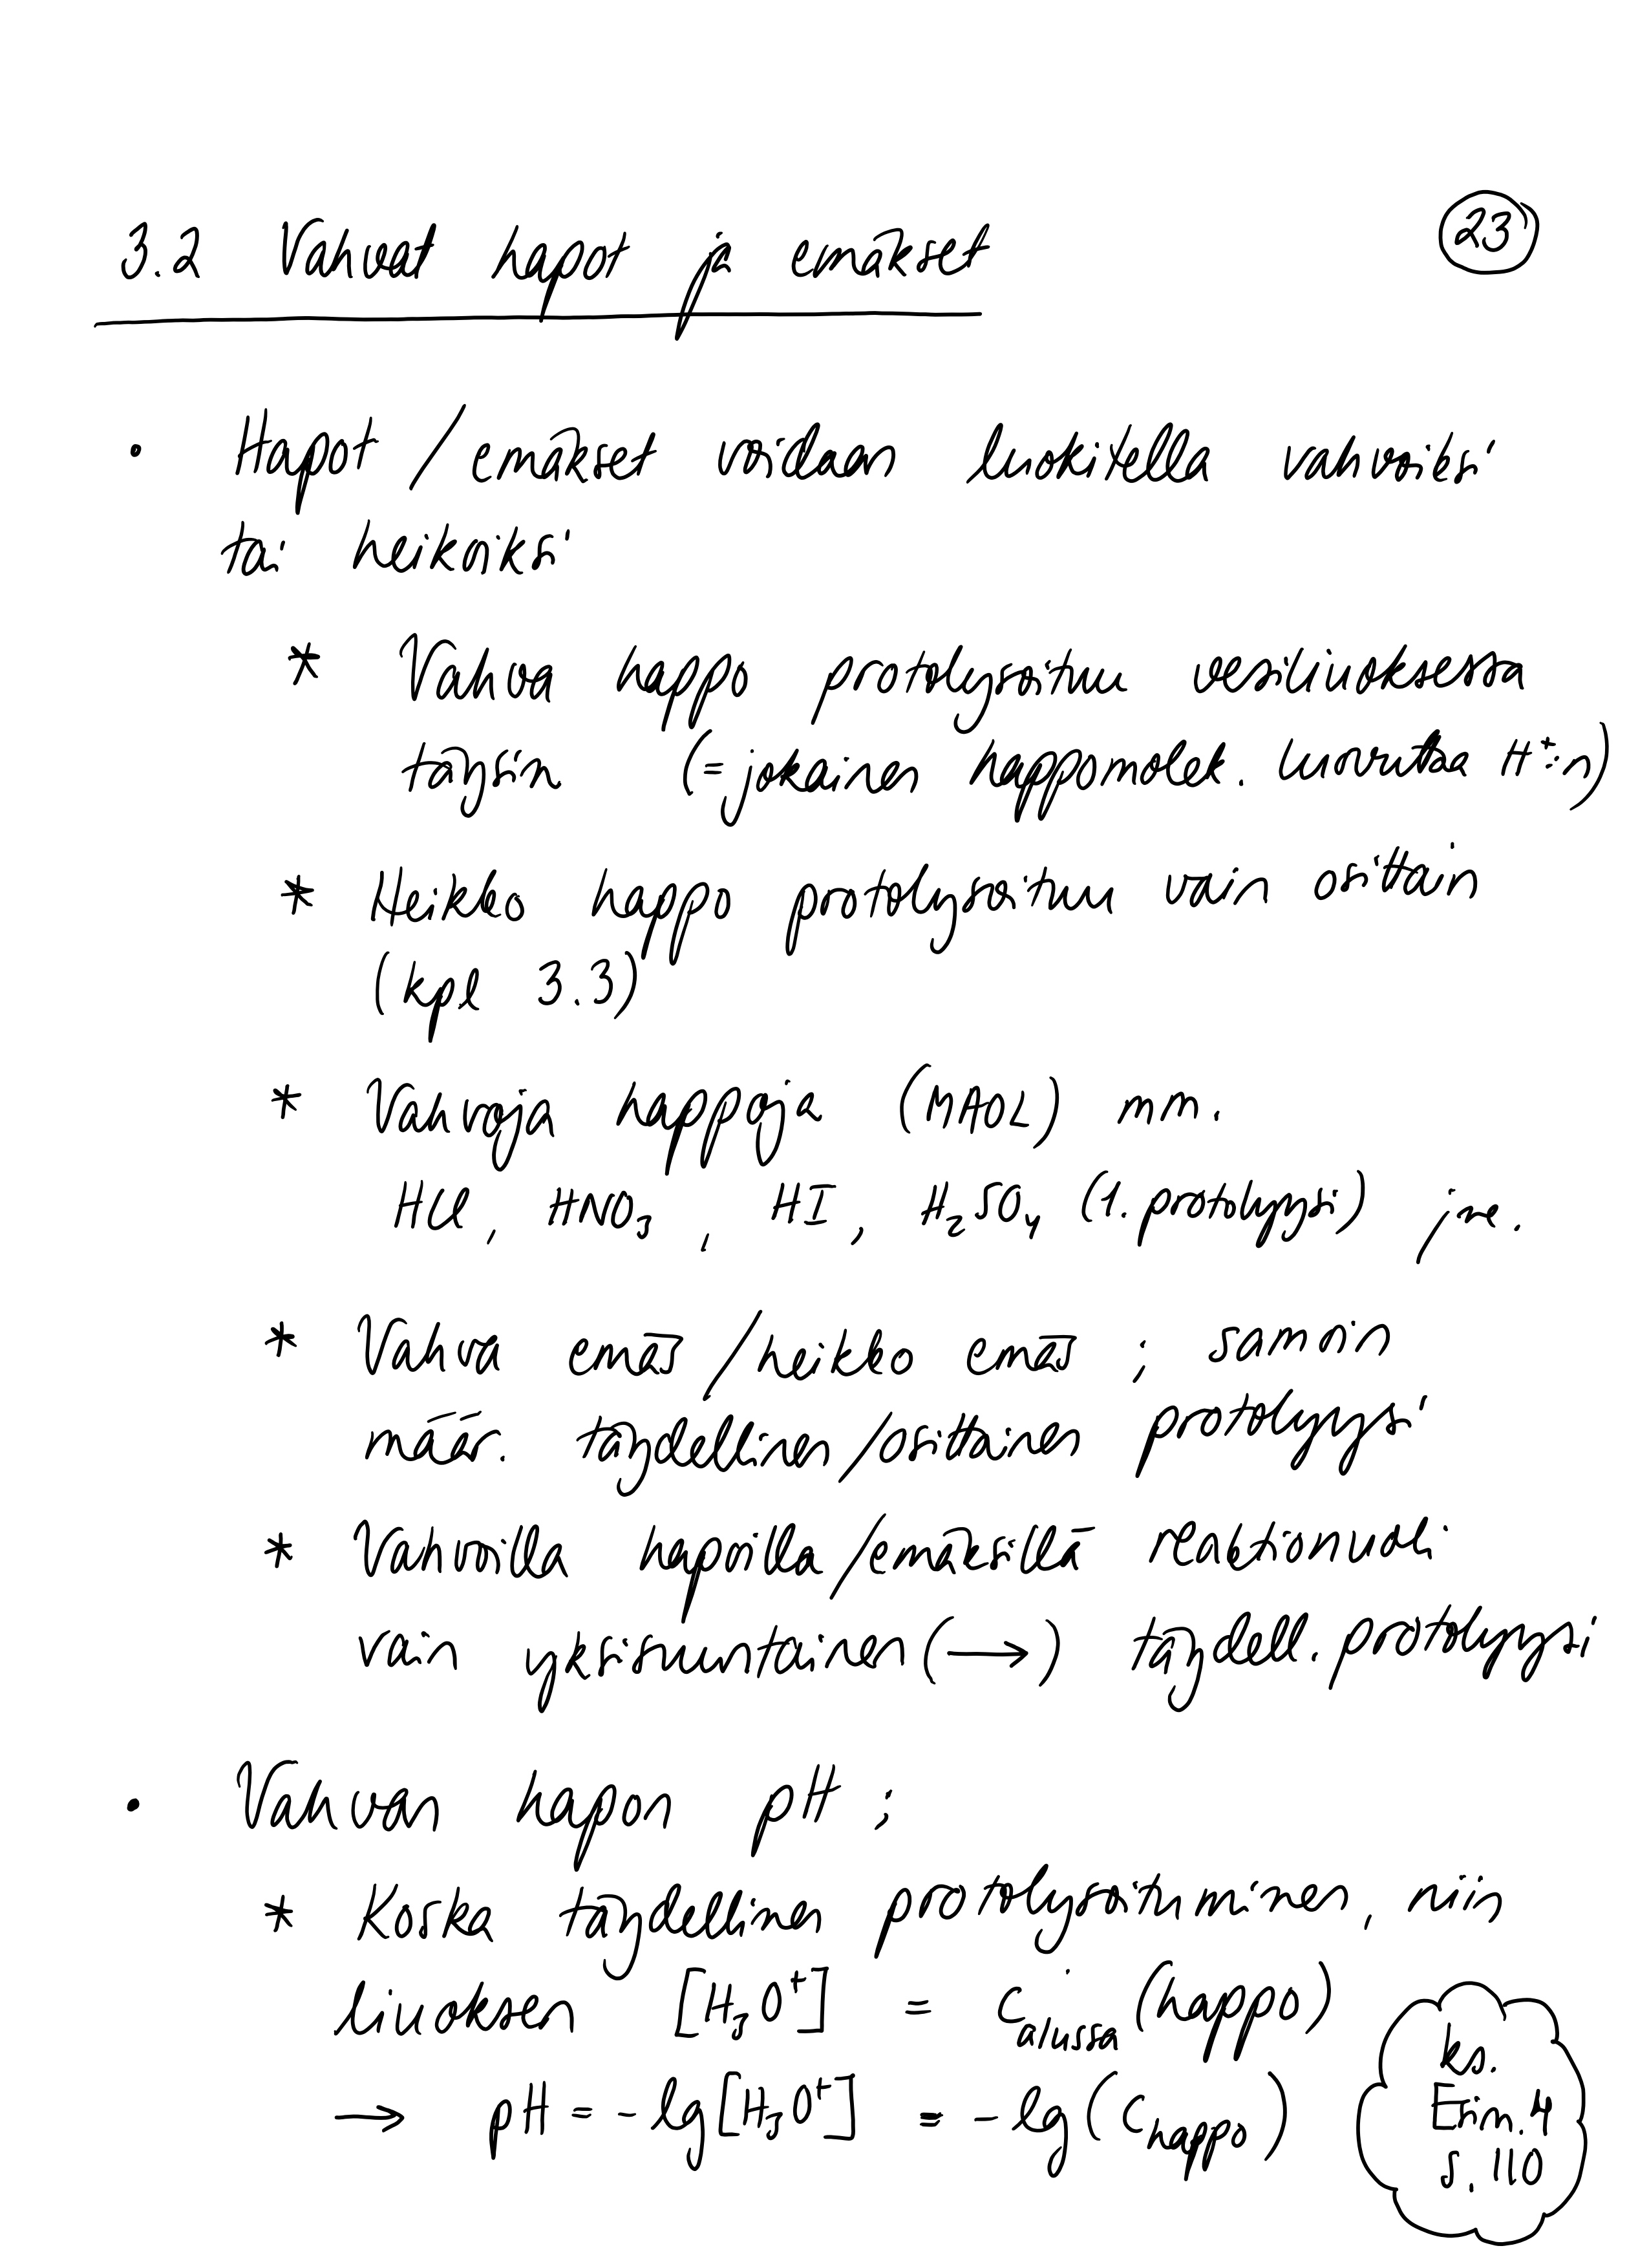 3.2 Vahvat hapot ja emäkset
23
• Hapot / emäkset voidaan luokitella vahvoiksi
tai heikoiksi
* Vahva happo protolysoituu vesiliuoksessa
täysin (= jokainen happomolek. luovuttaa H⁺:n)
* Heikko happo protolysoituu vain osittain
(kpl 3.3)
* Vahvoja happoja (MAOL) mm.
HCl, HNO₃, HI, H₂SO₄ (1. protolyysi) jne.
* Vahva emäs / heikko emäs ; samoin
määr. täydellinen / osittainen protolyysi
* Vahvoilla hapoilla / emäksillä reaktionuoli
vain yksisuuntainen (→) täydell. protolyysi
• Vahvan hapon pH ;
* Koska täydellinen protolysoituminen, niin
liuoksen [H₃O⁺] = c_alussa (happo)
→ pH = -lg[H₃O⁺] = -lg(c_happo)
ks.
Esim. 4
s. 110